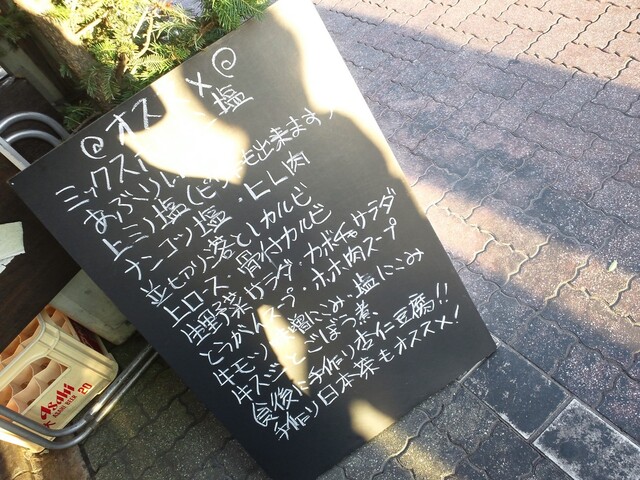 オススメ
ミックスホルモン塩
あぶりレバー
上ミノ塩(ピリ辛も出来ます)
ナンコツ塩・ヒレ肉
並切り落としカルビ
上ロス・骨付カルビ
生野菜サラダ カボチャサラダ
とうがんスープ・ホホ肉スープ
牛モツ味噌にこみ・塩にこみ
牛スジとごぼう煮
食後に手作り杏仁豆腐!!
手作り日本茶もオススメ!
Asahi
ASAHI BEER
20